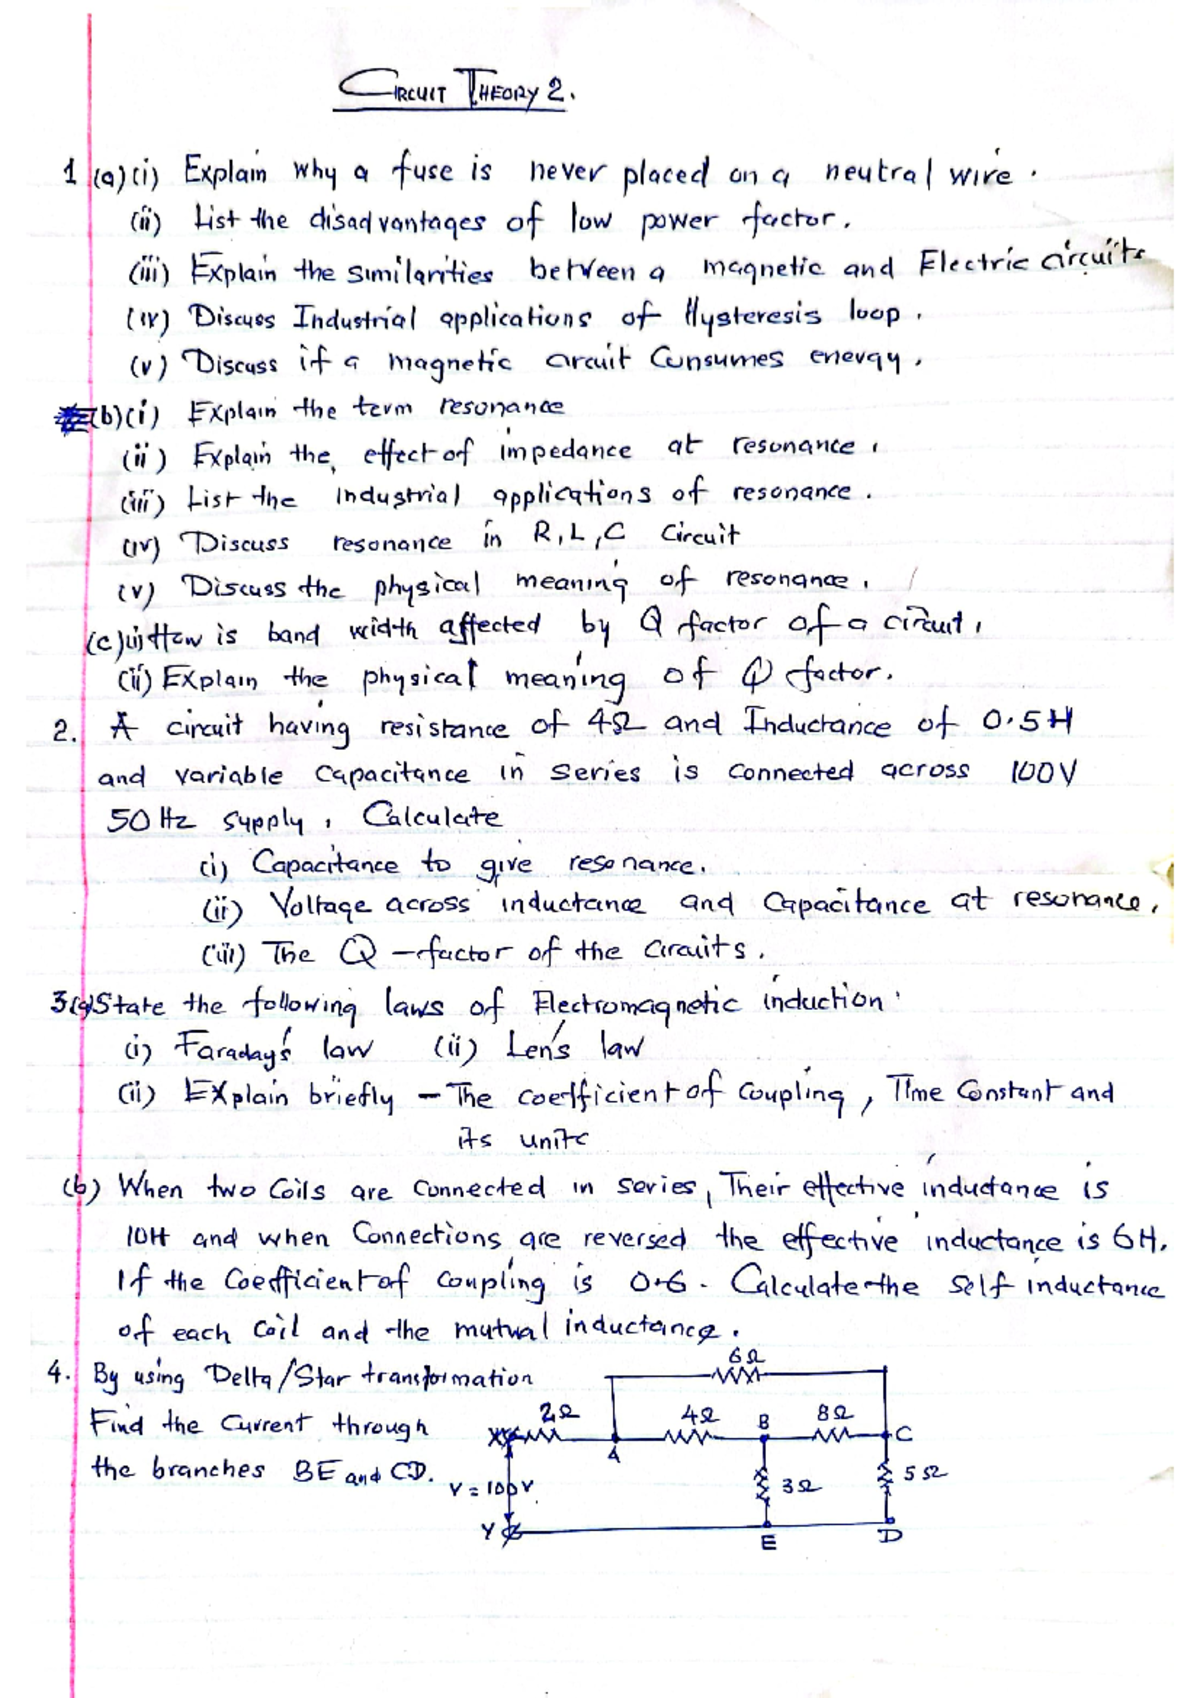 CIRCUIT THEORY 2.
1 (a)(i) Explain why a fuse is never placed on a neutral wire.
(ii) List the disadvantages of low power factor.
(iii) Explain the similarities between a magnetic and Electric circuits
(iv) Discuss Industrial applications of Hysteresis loop.
(v) Discuss if a magnetic circuit Consumes energy.
(b)(i) Explain the term resonance
(ii) Explain the effect of impedance at resonance.
(iii) List the industrial applications of resonance.
(iv) Discuss resonance in R, L, C Circuit
(v) Discuss the physical meaning of resonance.
(c)(i) How is band width affected by Q factor of a circuit.
(ii) Explain the physical meaning of Q factor.
2. A circuit having resistance of 4Ω and Inductance of 0.5H
and variable capacitance in series is connected across 100V
50Hz supply, Calculate
(i) Capacitance to give resonance.
(ii) Voltage across inductance and Capacitance at resonance.
(iii) The Q-factor of the circuits.
3(a) State the following laws of Electromagnetic induction.
(i) Faraday's law (ii) Len's law
(ii) Explain briefly - The coefficient of Coupling, Time Constant and
its units
(b) When two Coils are Connected in series, Their effective inductance is
10H and when Connections are reversed the effective inductance is 6H.
If the Coefficient of Coupling is 0.6. Calculate the Self inductance
of each Coil and the mutual inductance.
4. By using Delta/Star transformation
Find the Current through
the branches BE and CD.
6Ω
2Ω 4Ω B 8Ω
X A C
V = 100V 3Ω 5Ω
Y E D